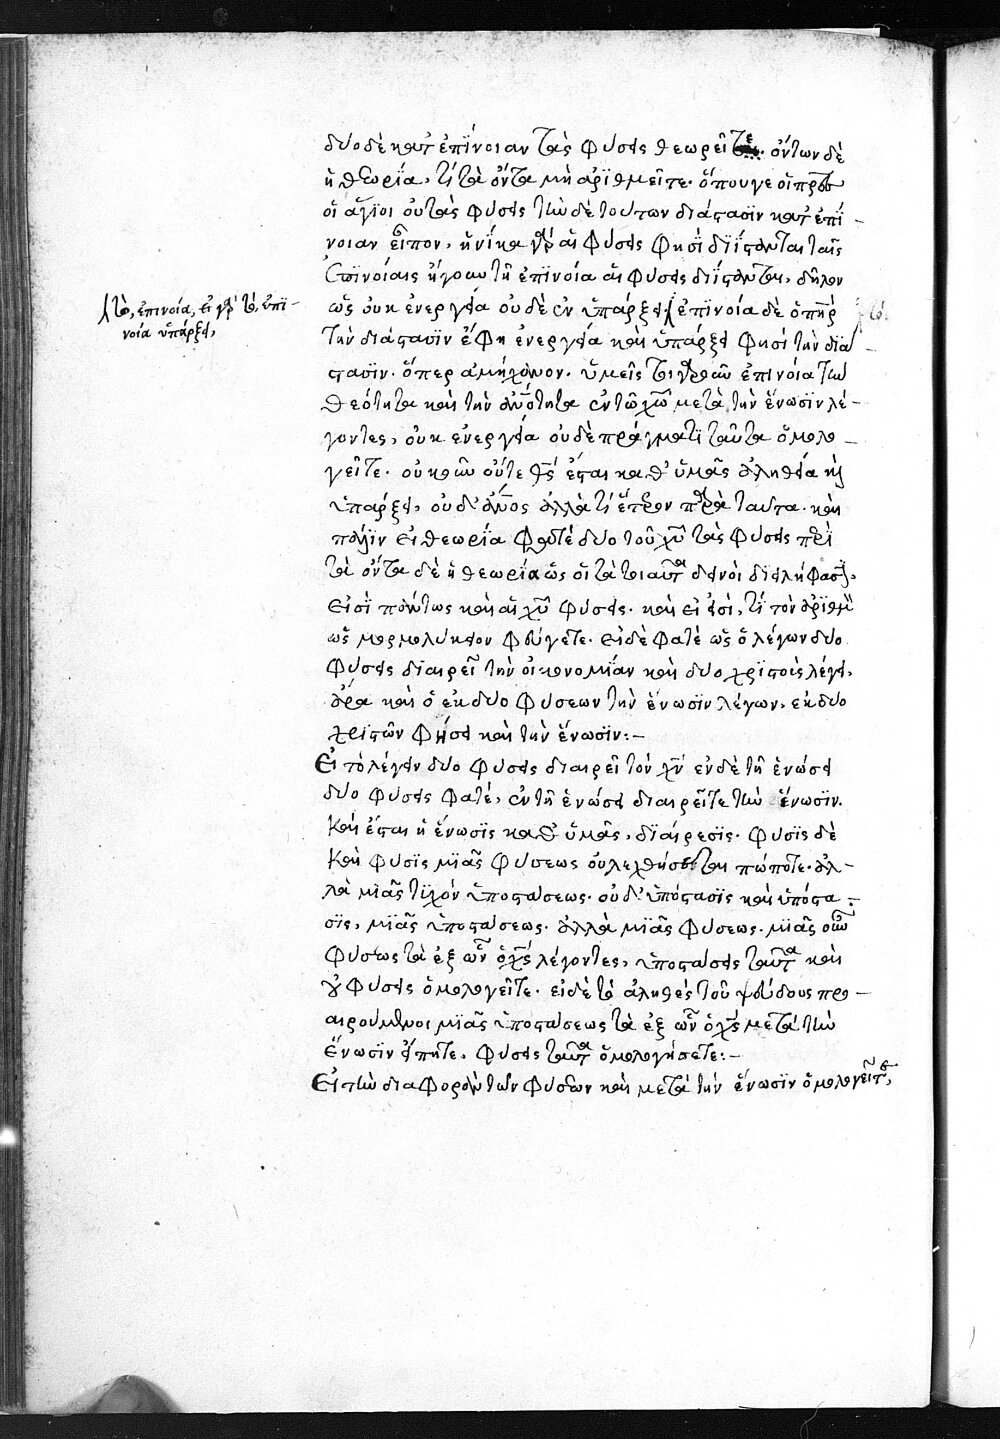 δύο δὲ κατ' ἐπίνοιαν τὰς φύσεις θεωρεῖτε. ὄντων δὲ
ἡ θεωρία, τί τὰ ὄντα μὴ ἀριθμεῖτε. ὅπου γε οἱ πρς
οἱ ἅγιοι οὐ τὰς φύσεις τὴν δὲ τούτων διάστασιν κατ' ἐπί-
νοιαν εἶπον, ἡνίκα γὰρ αἱ φύσεις φησὶ διΐστανται ταῖς
ἐπινοίαις ἤγουν τῇ ἐπινοία αἱ φύσεις διΐστανται, δῆλον
ὡς οὐκ ἐνεργεία οὐδὲ ἐν ὑπάρξει ἐπινοία δὲ ὁ πηρ
τὴν διάστασιν ἔφη ἐνεργεία καὶ ὑπάρξει φησὶ τὴν διά-
στασιν. ὅπερ ἀμήχανον. ὑμεῖς τοιγαροῦν ἐπινοία τὴν
θεότητα καὶ τὴν ἀνότητα ἐν τῶ χω μετὰ τὴν ἕνωσιν λέ-
γοντες, οὐκ ἐνεργεία οὐδὲ πράγματι ταῦτα ὁμολο-
γεῖτε. οὐκοῦν οὔτε θς ἔσται καθ' ὑμᾶς ἀληθεία καὶ
ὑπάρξει, οὐδ' ἄνος ἀλλὰ τί ἕτερον παρὰ ταῦτα. καὶ
πάλιν εἰ θεωρία φατὲ δύο τοῦ χυ τὰς φύσεις περὶ
τὰ ὄντα δὲ ἡ θεωρία ὡς οἱ τὰ τοιαῦτα δεινοὶ διειλήφασι,
εἰσὶ πάντως καὶ αἱ χυ φύσεις. καὶ εἰ εἰσὶ, τί τὸν ἀριθμὸν
ὡς μορμολύκειον φεύγετε. εἰ δὲ φατὲ ὡς ὁ λέγων δύο
φύσεις διαιρεῖ τὴν οἰκονομίαν καὶ δύο χριστοὺς λέγει,
ἄρα καὶ ὁ ἐκ δύο φύσεων τὴν ἕνωσιν λέγων, ἐκ δύο
χριστῶν φήσει καὶ τὴν ἕνωσιν:-
Εἰ τὸ λέγειν δύο φύσεις διαιρεῖ τὸν χν ἐν δὲ τῇ ἑνώσει
δύο φύσεις φατέ, ἐν τῇ ἑνώσει διαιρεῖτε τὴν ἕνωσιν.
καὶ ἔσται ἡ ἕνωσις καθ' ὑμᾶς, διαίρεσις. φύσις δὲ
καὶ φύσις μιᾶς φύσεως οὐ λεχθήσεται πώποτε. ἀλ-
λὰ μιᾶς τυχὸν ὑποστάσεως. οὐδ' ὑπόστασις καὶ ὑπόστα-
σις, μιᾶς ὑποστάσεως. ἀλλὰ μιᾶς φύσεως. μιᾶς οὖν
φύσεως τὰ ἐξ ὧν ὁ χς λέγοντες, ὑποστάσεις ταῦτα καὶ
οὐ φύσεις ὁμολογεῖτε. εἰ δὲ τὸ ἀληθὲς τοῦ ψεύδους προ-
αιρούμενοι μιᾶς ὑποστάσεως τὰ ἐξ ὧν ὁ χς μετὰ τὴν
ἕνωσιν εἴπητε, φύσεις ταῦτα ὁμολογήσετε:-
Εἰ τὴν διαφορὰν τῶν φύσεων καὶ μετὰ τὴν ἕνωσιν ὁμολογεῖτε,
τὸ, ἐπινοία, εἰ γὰρ τὸ, ἐπι-
νοία ὑπάρξει,